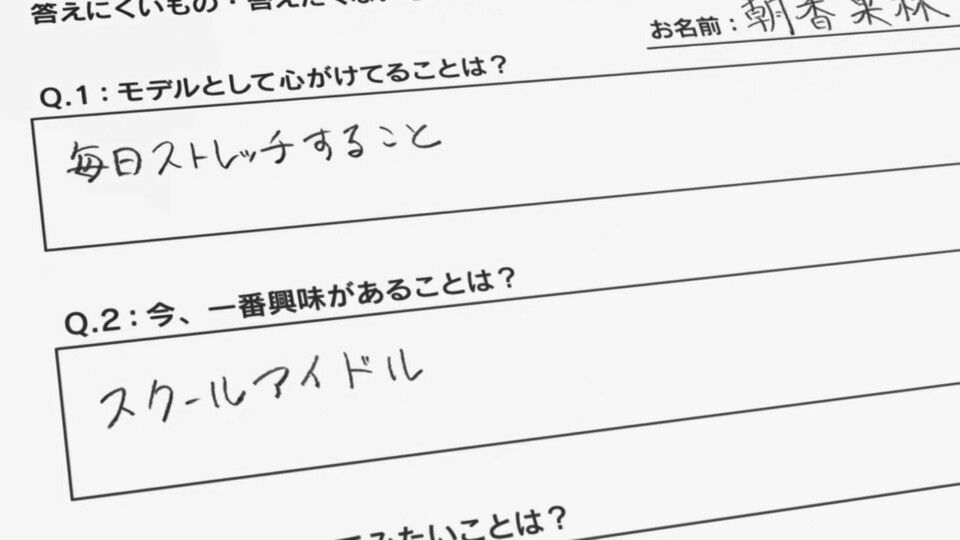 答えにくいもの・答えたくない
お名前：朝香果林
Q.1：モデルとして心がけてることは？
毎日ストレッチすること
Q.2：今、一番興味があることは？
スクールアイドル
てみたいことは？